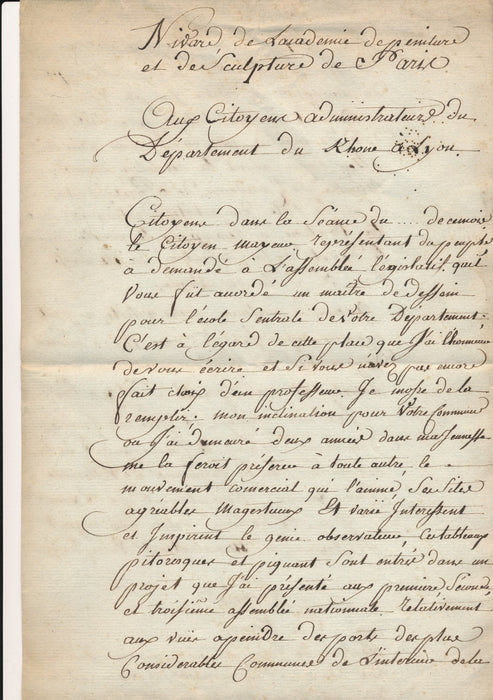 Nivard de Lacademie de peinture
et de Sculpture de Paris.
Aux Citoyens administrateurs du
Département du Rhone a Lyon.
Citoyens dans la Séance du .... de ce mois
le Citoyen mayeuvre représentant du peuple
à demandé à L'assemblée législatif. qu'il
Vous fut accordé un maitre de dessein
pour l'école Sentrale de Votre Département.
C'est à l'égard de cette place que J'ai l'honneur
de vous écrire et Si vous n'avez pas encore
fait choix d'un professeur. Je m'ofre de la
remplir. mon inclination pour Votre Commune
ou J'ai demeuré deux année dans ma Jeunesse
me la feroit préferer à toute autre. le
mouvement comercial qui l'anime Ses Sites
agreables Magestueux Et varié Interessent
et Inspirent le genie observateur, Ces tableaux
pitoresques et piquant Sont entrés dans un
projet que J'ai présenté aux premiere Seconde
et troisiéme assemblée nationale. relativement
aux vues a peindre des ports des plus
Considerables Communes de L'interieur de la